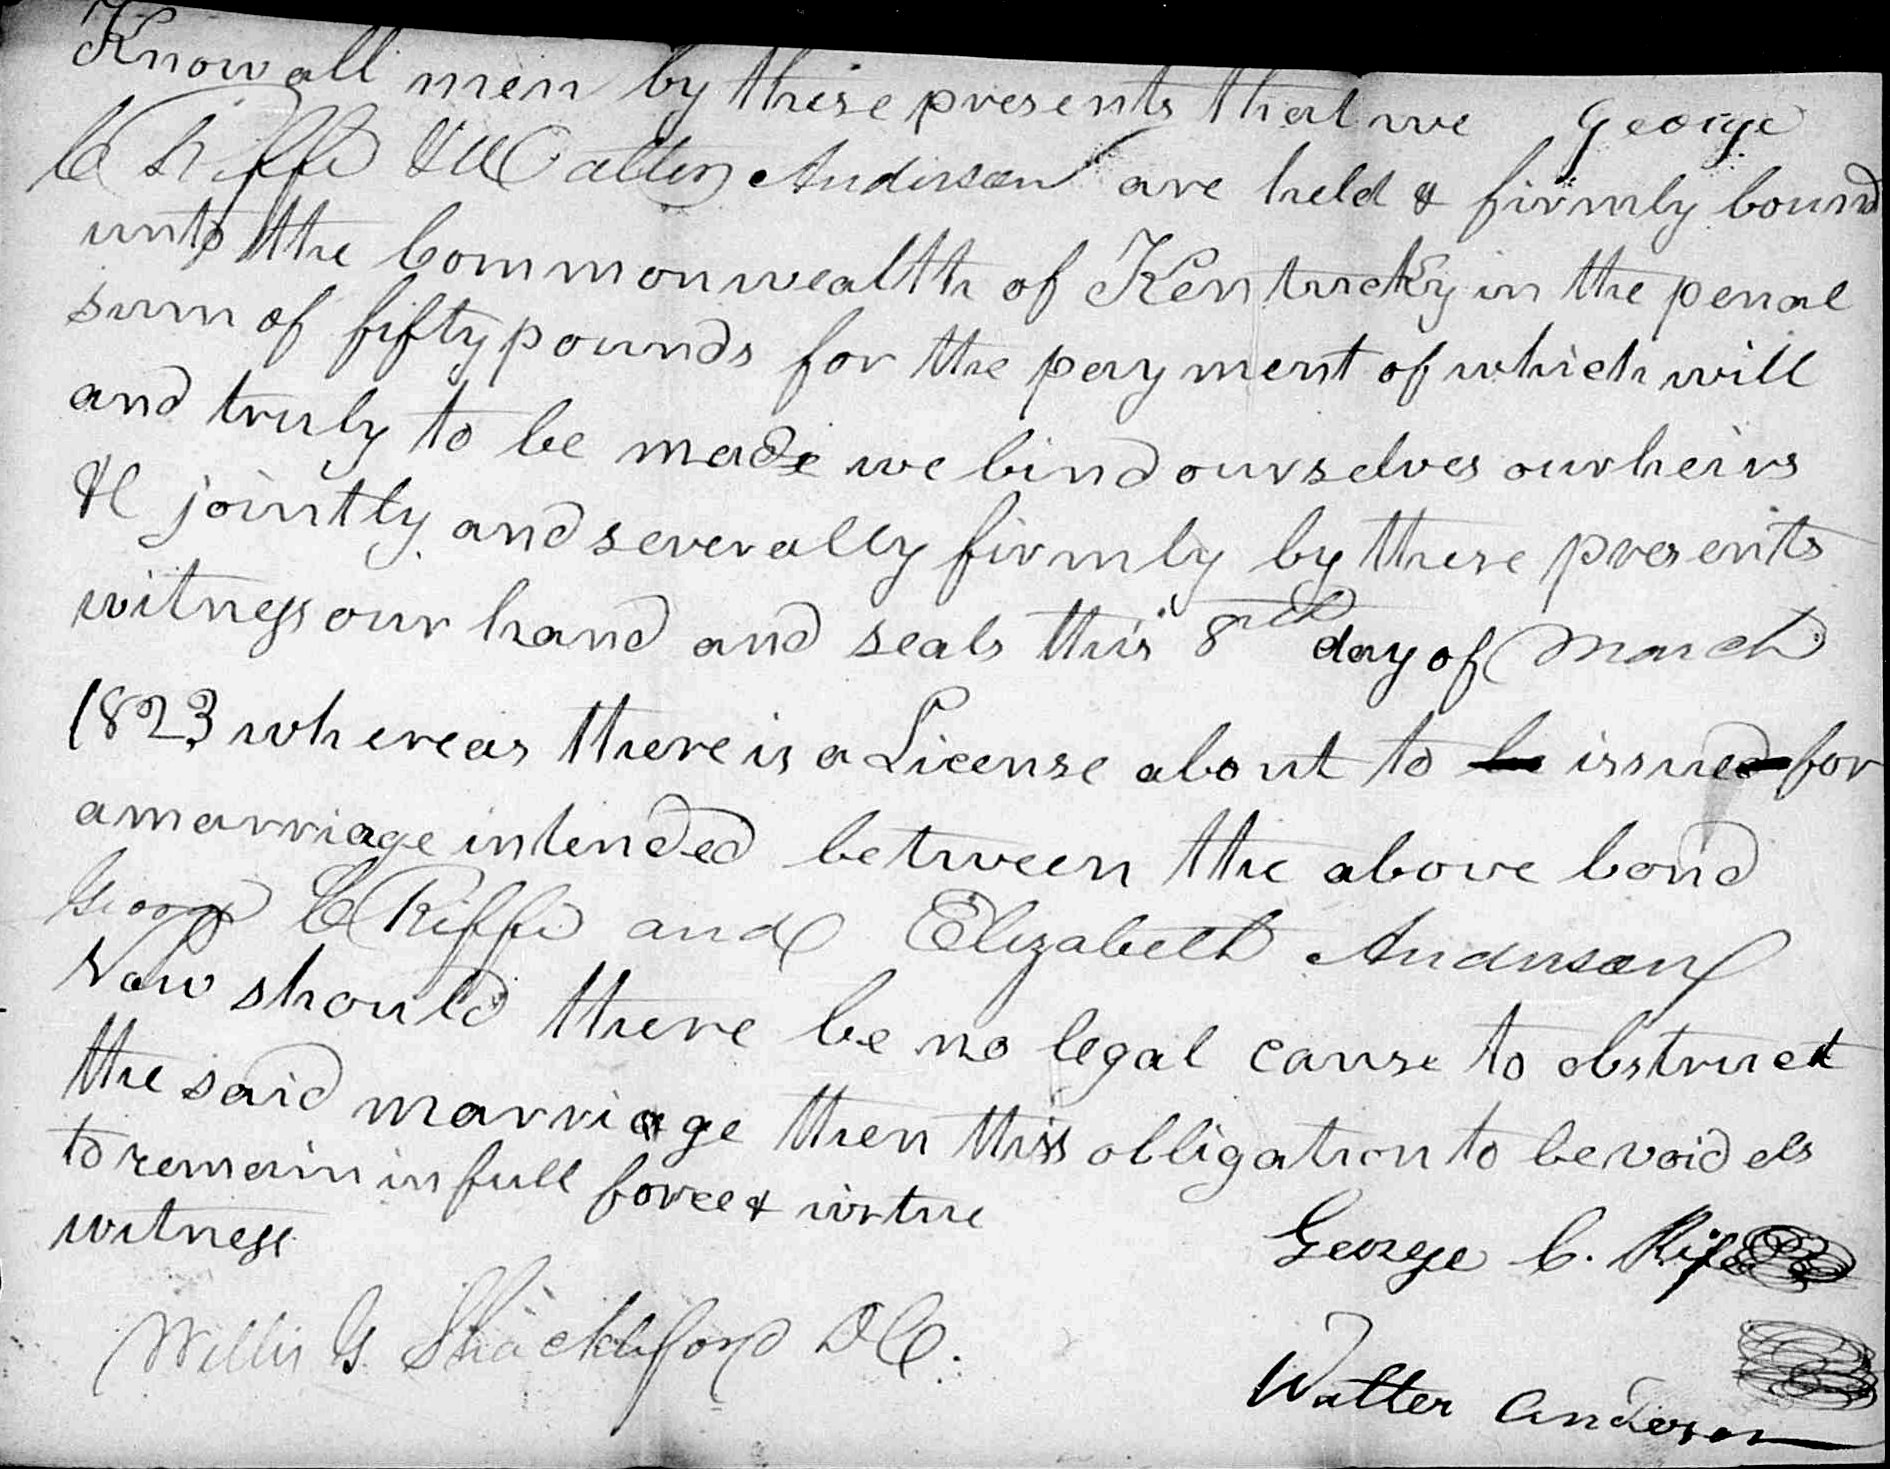 Know all men by these presents that we George
C Riffe & Walter Anderson are held & firmly bound
unto the Commonwealth of Kentucky in the penal
sum of fifty pounds for the payment of which will
and truly to be made we bind ourselves our heirs
&C jointly and severally firmly by these presents
witness our hand and seals this 8th day of March
1823 whereas there is a License about to be issued for
a marriage intended between the above bond
George C Riffe and Elizabeth Anderson
Now should there be no legal cause to obstruct
the said marriage then this obligation to be void els
to remain in full force & virtue
witness
George C. Rife
Willis G Shackelford DC.
Walter Anderson